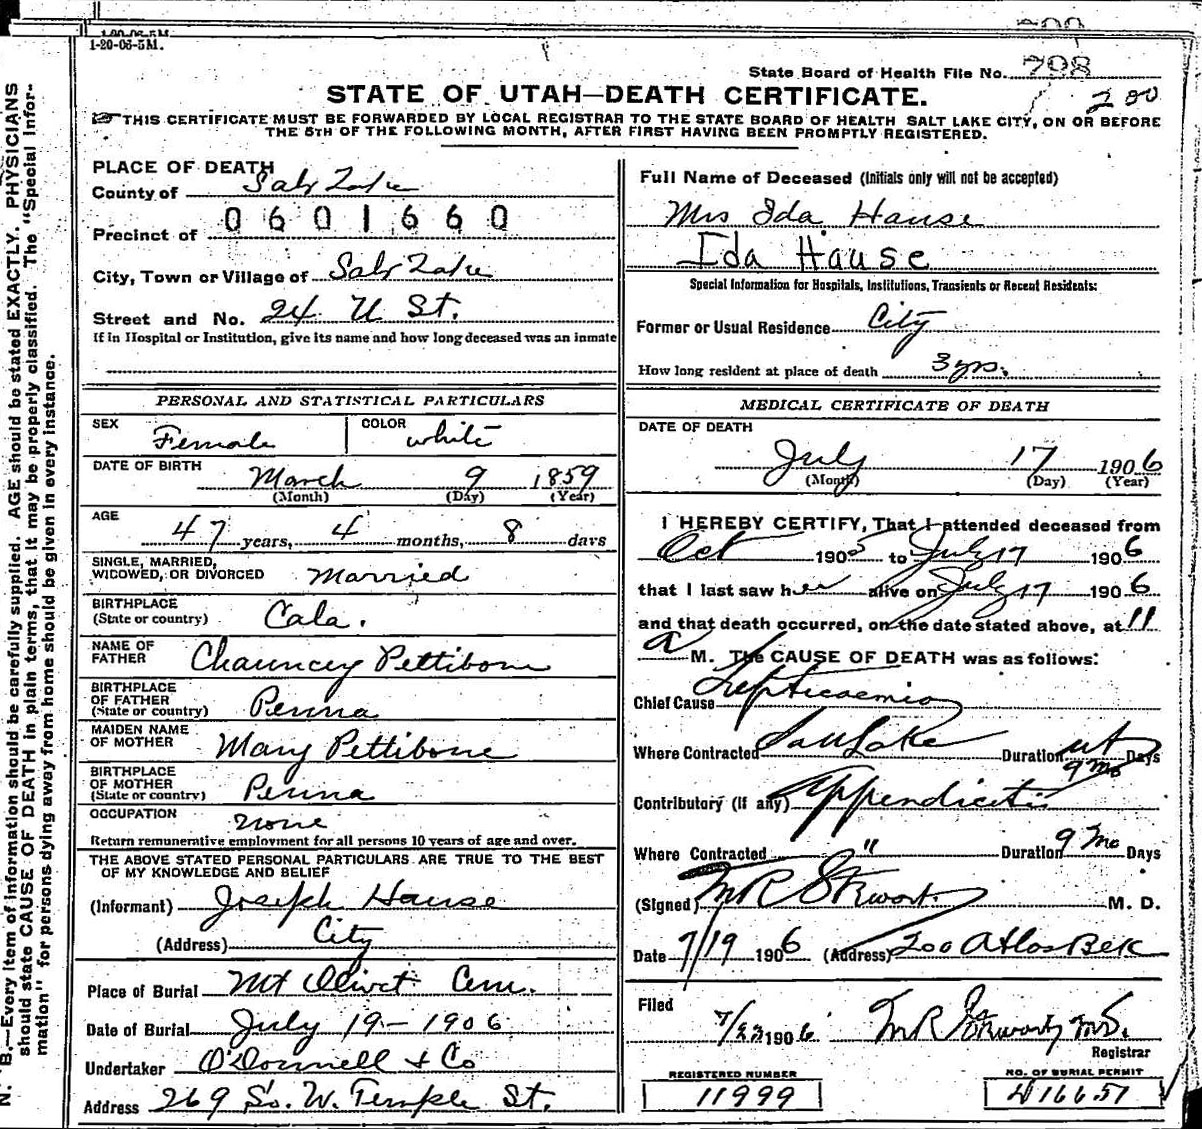 1-20-06-5M.
1-20-06-5M.
State Board of Health File No. 798
200
STATE OF UTAH—DEATH CERTIFICATE.
THIS CERTIFICATE MUST BE FORWARDED BY LOCAL REGISTRAR TO THE STATE BOARD OF HEALTH SALT LAKE CITY, ON OR BEFORE
THE 5TH OF THE FOLLOWING MONTH, AFTER FIRST HAVING BEEN PROMPTLY REGISTERED.
PLACE OF DEATH
County of Salt Lake
0601660
Precinct of
City, Town or Village of Salt Lake
Street and No. 24 U St.
If in Hospital or Institution, give its name and how long deceased was an inmate
Full Name of Deceased (Initials only will not be accepted)
Mrs Ida Hause
Ida Hause
Special Information for Hospitals, Institutions, Transients or Recent Residents:
Former or Usual Residence City
How long resident at place of death 3 yrs.
PERSONAL AND STATISTICAL PARTICULARS
SEX Female COLOR white
DATE OF BIRTH March 9 1859
(Month) (Day) (Year)
AGE 47 years, 4 months, 8 days
SINGLE, MARRIED,
WIDOWED, OR DIVORCED Married
BIRTHPLACE
(State or country) Cala.
NAME OF
FATHER Chauncey Pettibone
BIRTHPLACE
OF FATHER
(State or country) Penna
MAIDEN NAME
OF MOTHER Mary Pettibone
BIRTHPLACE
OF MOTHER
(State or country) Penna
OCCUPATION none
Return remunerative employment for all persons 10 years of age and over.
THE ABOVE STATED PERSONAL PARTICULARS ARE TRUE TO THE BEST
OF MY KNOWLEDGE AND BELIEF
(Informant) Joseph Hause
(Address) City
Place of Burial Mt Olivet Cem.
Date of Burial July 19 - 1906
Undertaker O'Donnell & Co
Address 269 So. W. Temple St.
MEDICAL CERTIFICATE OF DEATH
DATE OF DEATH
July 17 1906
(Month) (Day) (Year)
I HEREBY CERTIFY, That I attended deceased from
Oct 1905 to July 17 1906
that I last saw her alive on July 17 1906
and that death occurred, on the date stated above, at 11
a M. The CAUSE OF DEATH was as follows:
Chief Cause Septicaemia
Where Contracted Salt Lake Duration 9 mo Days
Contributory (If any) Appendicitis
Where Contracted " Duration 9 Mo Days
(Signed) M R Stewart M. D.
Date 7/19 1906 (Address) 200 Atlas Blk
Filed
7/23 1906 M R Stewart M.D.
Registrar
REGISTERED NUMBER
11999
NO. OF BURIAL PERMIT
N. B.—Every item of information should be carefully supplied. AGE should be stated EXACTLY. PHYSICIANS
should state CAUSE OF DEATH in plain terms, that it may be properly classified. The "Special Infor-
mation" for persons dying away from home should be given in every instance.